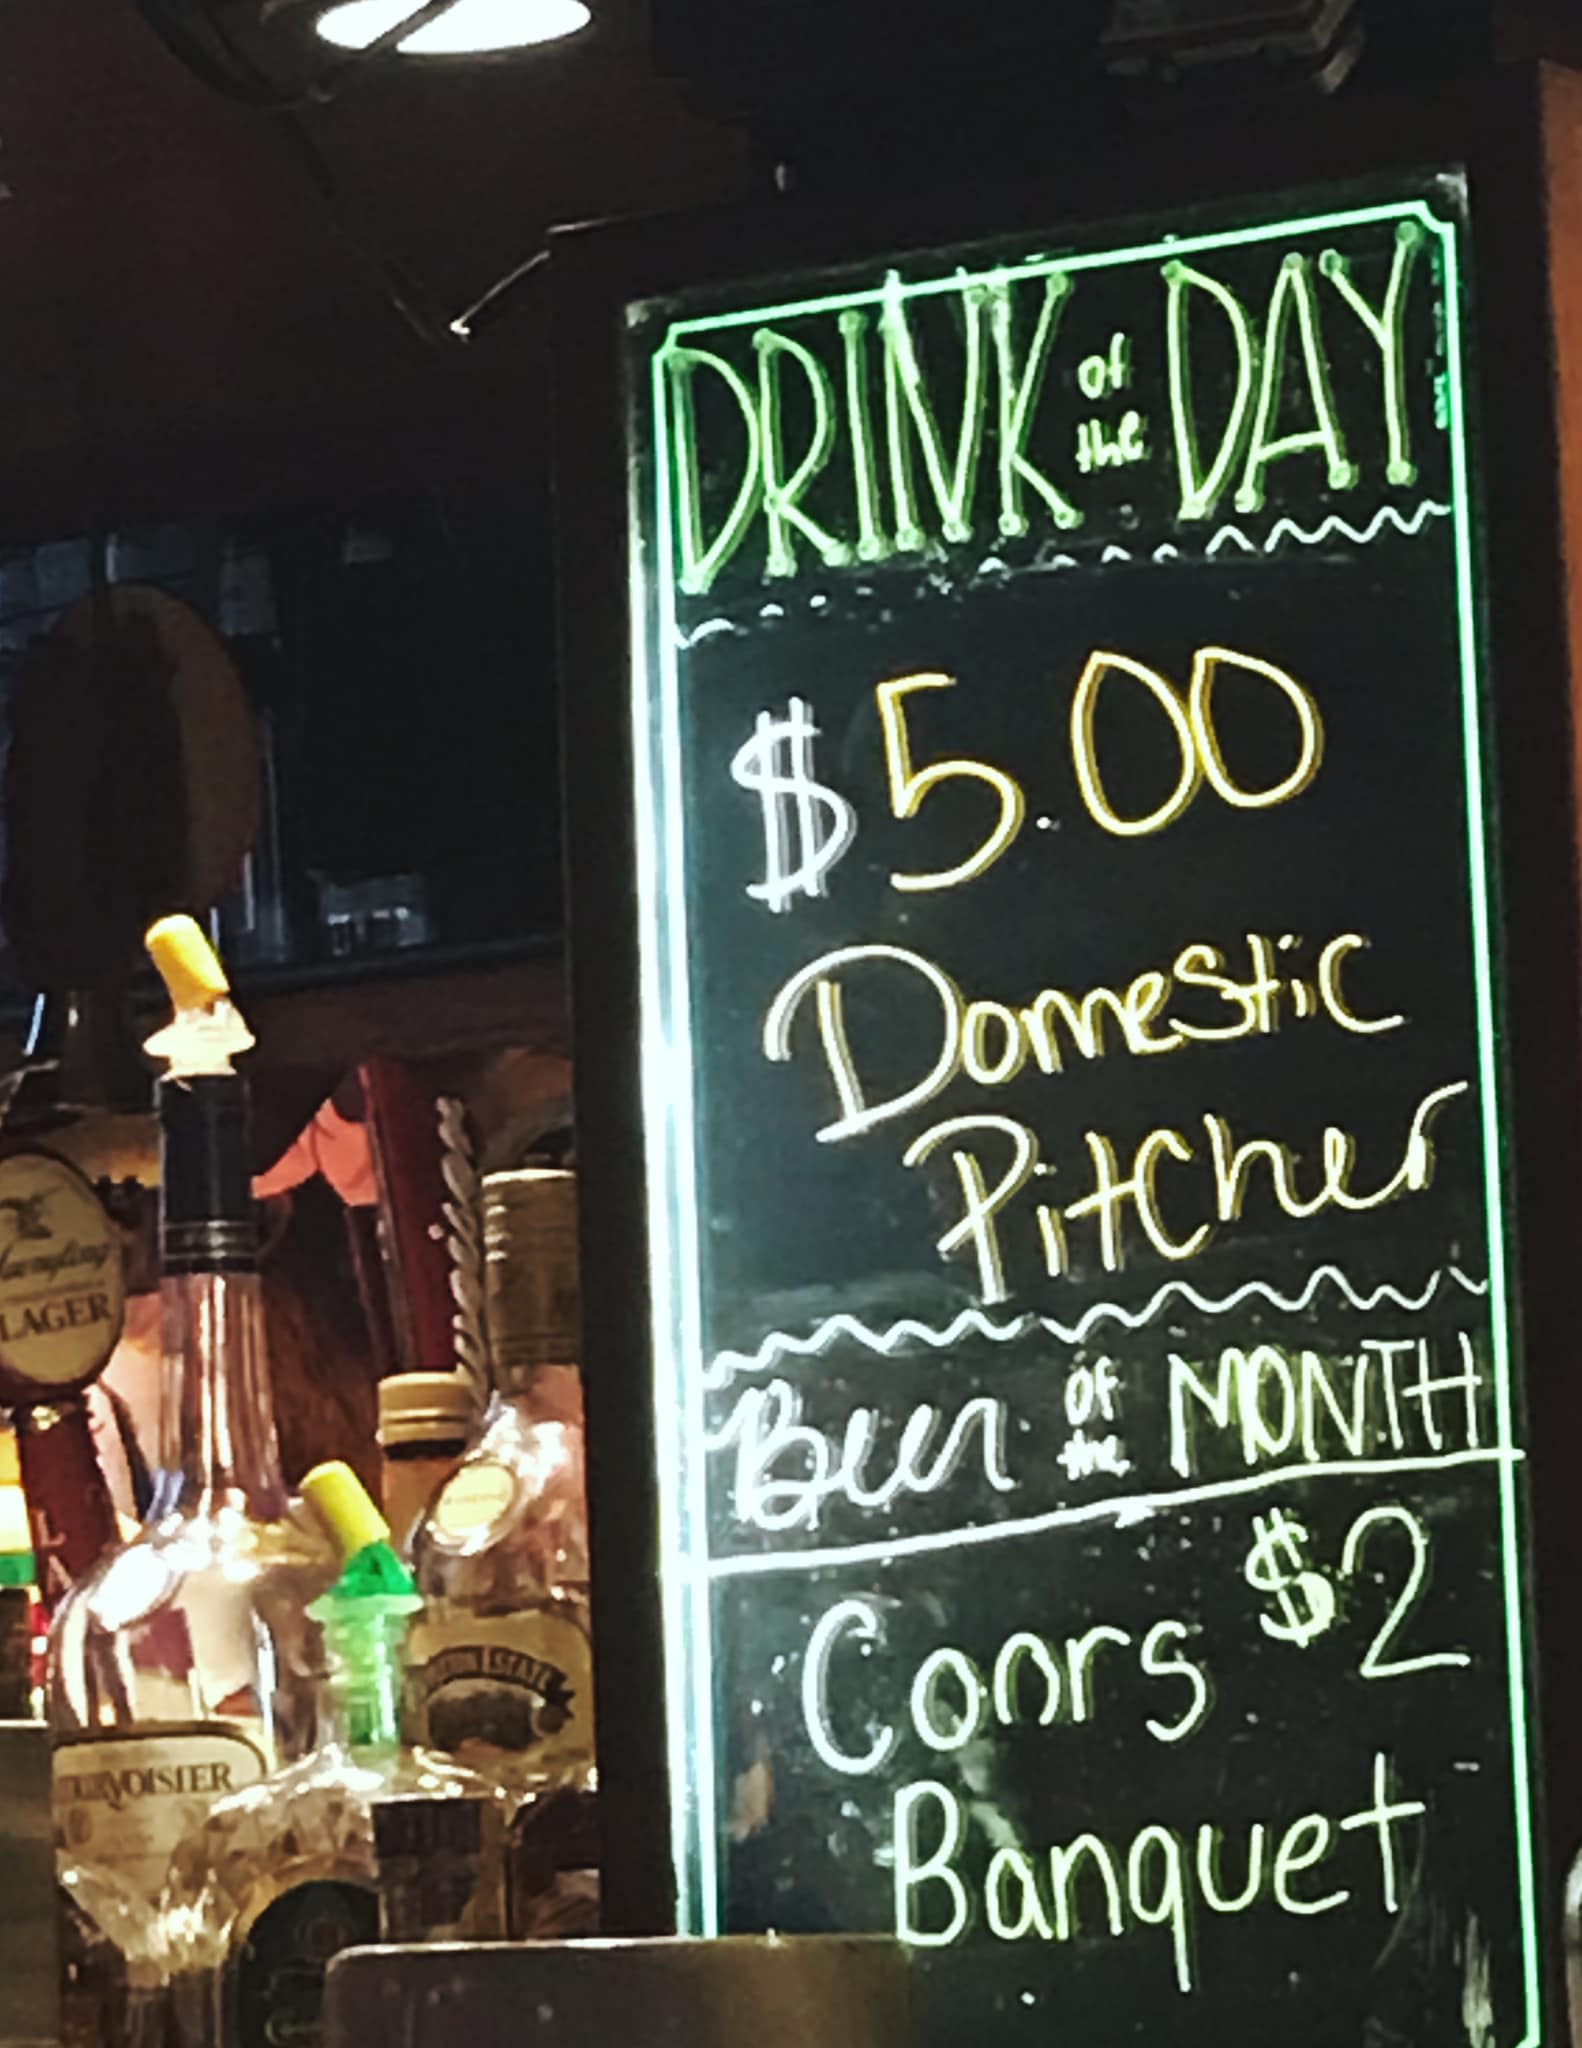 DRINK of the DAY
$5.00
Domestic
Pitcher
Beer of the MONTH
Coors $2
Banquet
LAGER